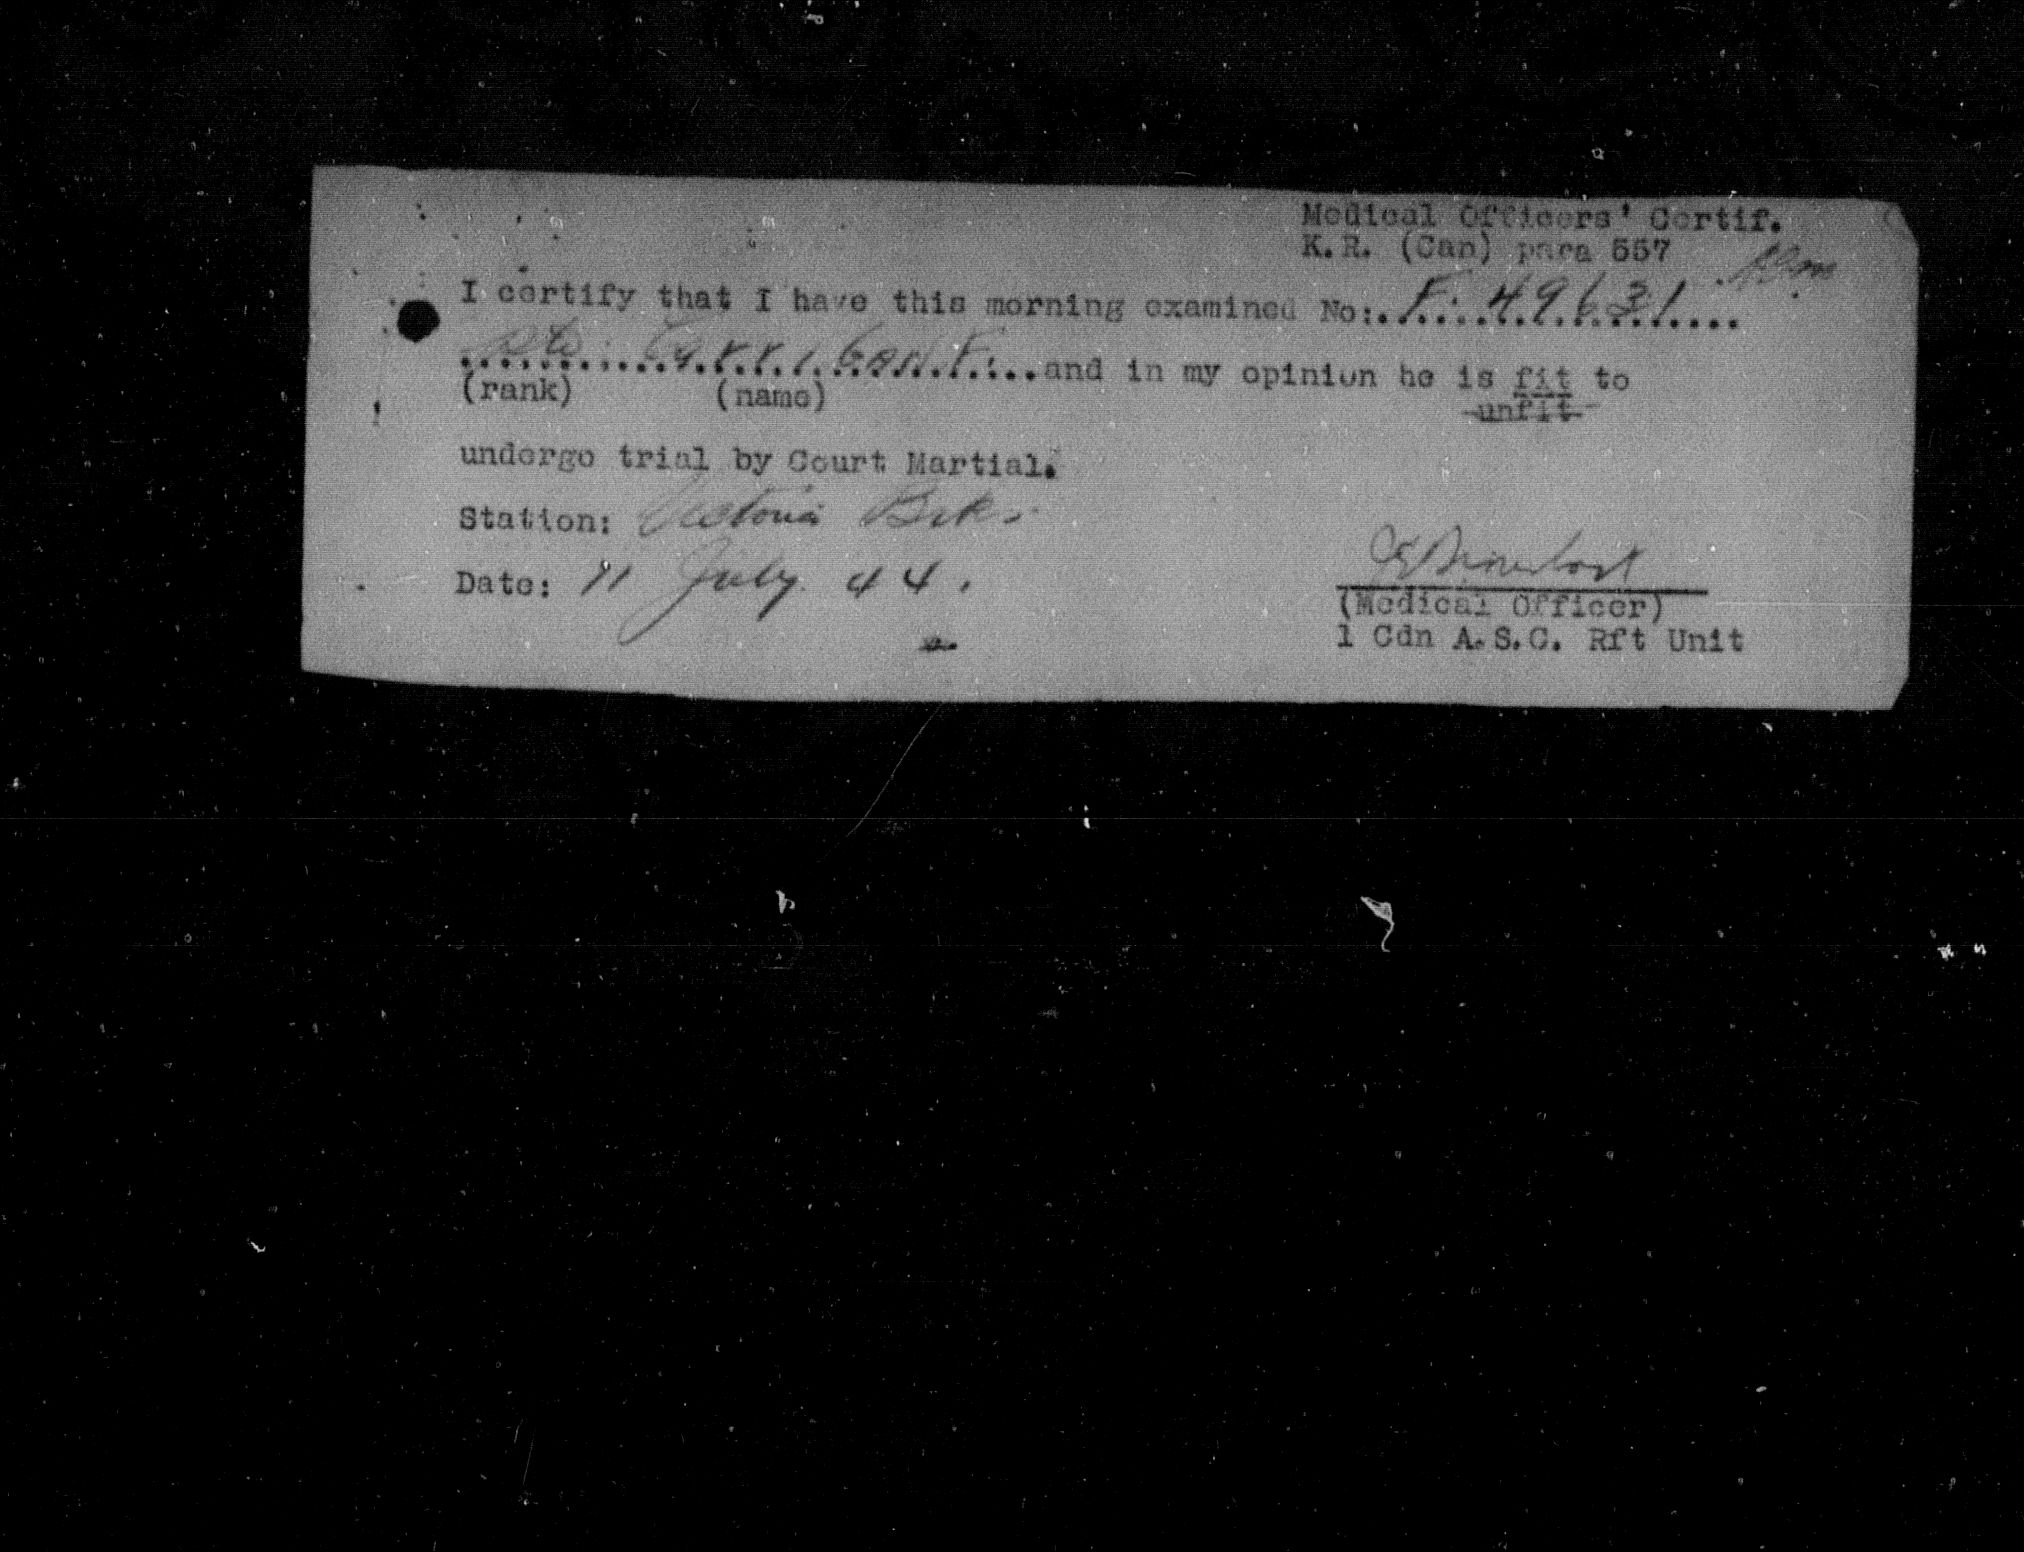 Medical Officers' Certif.
K.R. (Can) para 557
I certify that I have this morning examined No: F. 49631
Pte. CarriGAN F. and in my opinion he is fit to
(rank) (name) unfit
undergo trial by Court Martial.
Station: Victoria Bks.
Date: 11 July 44.
(Medical Officer)
1 Cdn A.S.C. Rft Unit